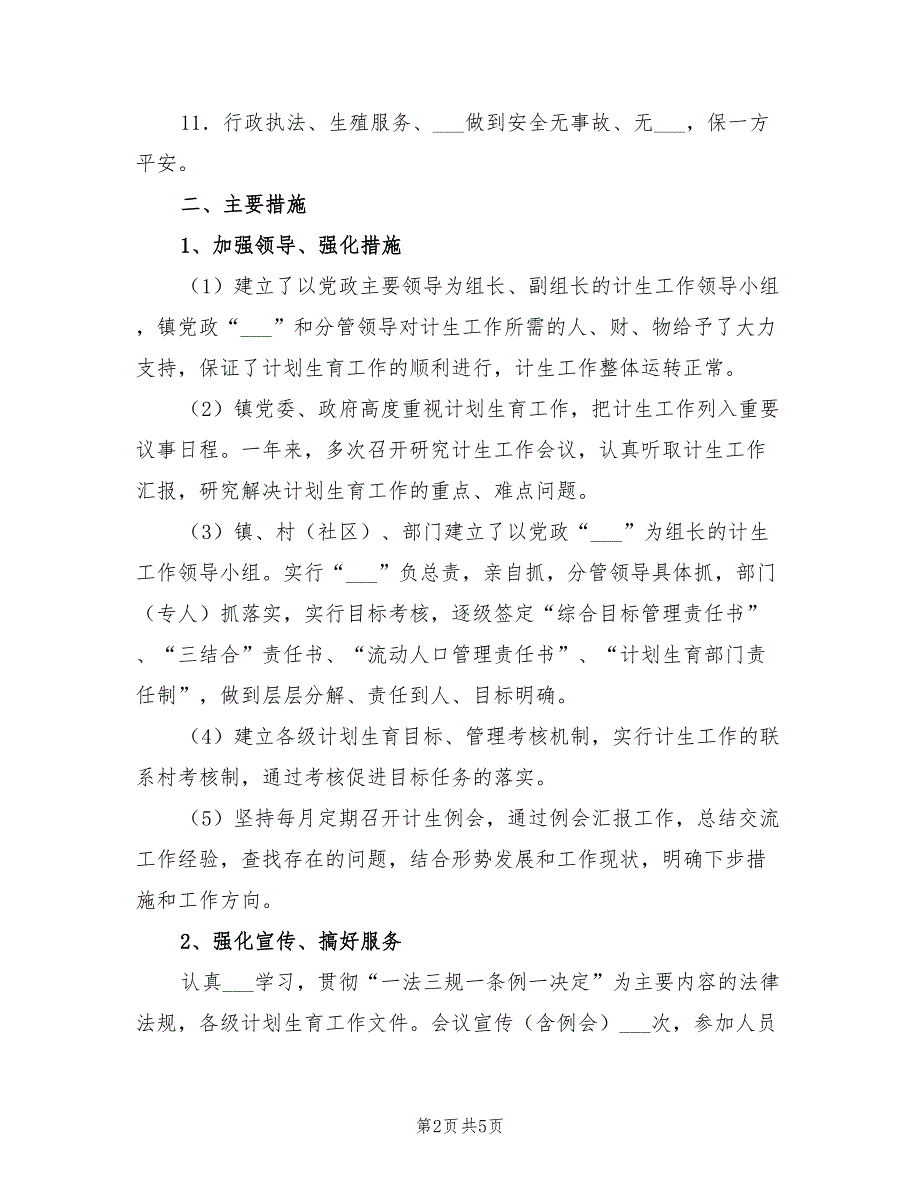 11．行政执法、生殖服务、___做到安全无事故、无___，保一方
平安。
二、主要措施
1、加强领导、强化措施
（1）建立了以党政主要领导为组长、副组长的计生工作领导小组
，镇党政“___”和分管领导对计生工作所需的人、财、物给予了大力
支持，保证了计划生育工作的顺利进行，计生工作整体运转正常。
（2）镇党委、政府高度重视计划生育工作，把计生工作列入重要
议事日程。一年来，多次召开研究计生工作会议，认真听取计生工作
汇报，研究解决计划生育工作的重点、难点问题。
（3）镇、村（社区）、部门建立了以党政“___”为组长的计生
工作领导小组。实行“___”负总责，亲自抓，分管领导具体抓，部门
（专人）抓落实，实行目标考核，逐级签定“综合目标管理责任书”
、“三结合”责任书、“流动人口管理责任书”、“计划生育部门责
任制”，做到层层分解、责任到人、目标明确。
（4）建立各级计划生育目标、管理考核机制，实行计生工作的联
系村考核制，通过考核促进目标任务的落实。
（5）坚持每月定期召开计生例会，通过例会汇报工作，总结交流
工作经验，查找存在的问题，结合形势发展和工作现状，明确下步措
施和工作方向。
2、强化宣传、搞好服务
认真___学习，贯彻“一法三规一条例一决定”为主要内容的法律
法规，各级计划生育工作文件。会议宣传（含例会）___次，参加人员
第2页 共5页